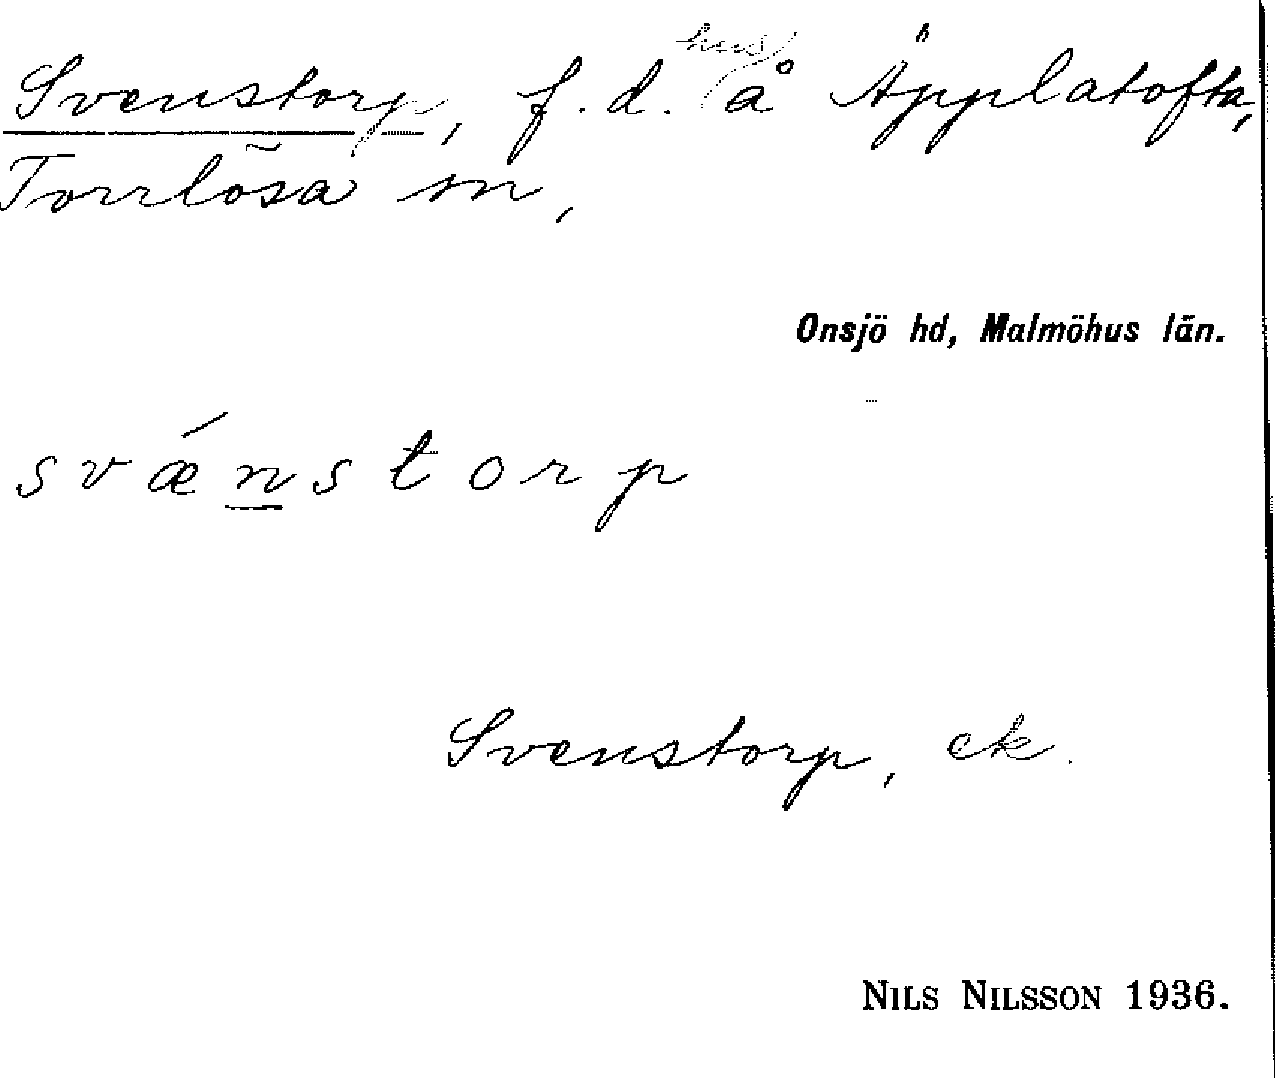 Svenstorp, f.d. hus å Äpplatofta,
Torrlösa sn,
Onsjö hd, Malmöhus län.
svǽn̲storp
Svenstorp, ek.
NILS NILSSON 1936.